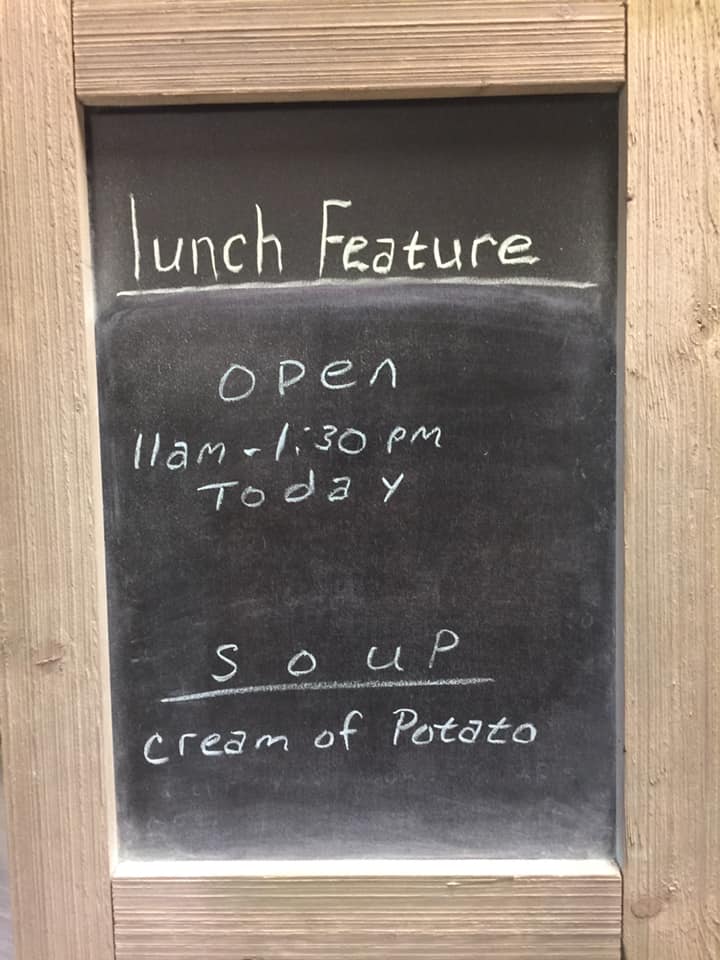 lunch Feature
open
11am - 1:30 pm
Today
soup
cream of Potato